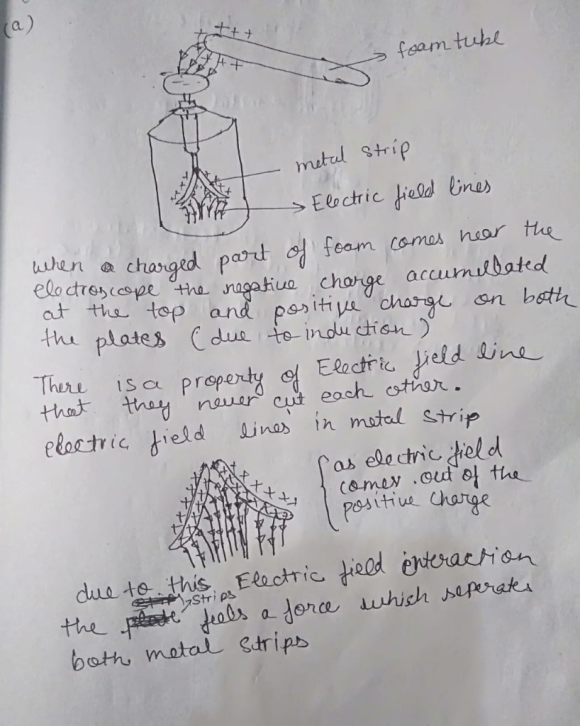 (a)
foam tube
metal strip
Electric field lines
when a charged part of foam comes near the
electroscope the negative charge accumulbated
at the top and positive charge on both
the plates (due to induction)
There is a property of Electric field line
that they never cut each other.
electric field lines in metal strip
as electric field
comes out of the
positive charge
due to this Electric field interaction
the strips feels a force which seperates
both metal strips